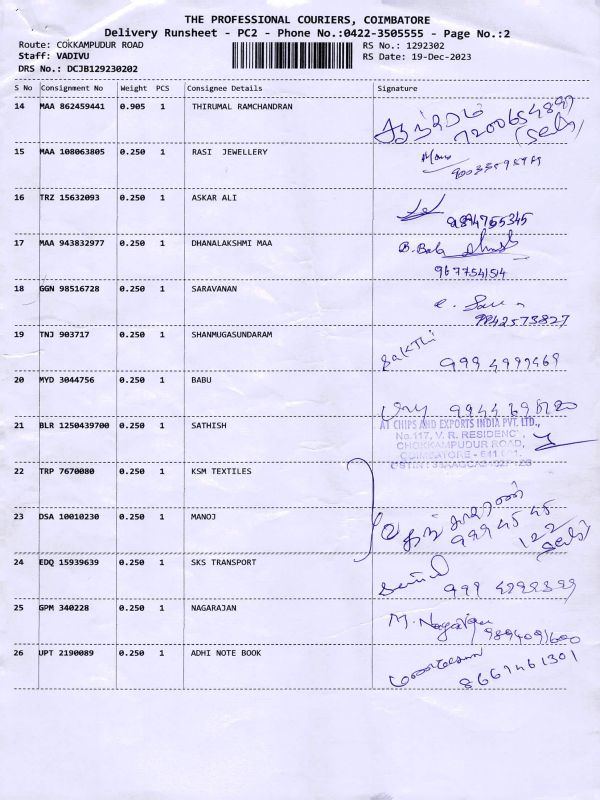 THE PROFESSIONAL COURIERS, COIMBATORE
Delivery Runsheet - PC2 - Phone No.:0422-3505555 - Page No.:2
Route: COKKAMPUDUR ROAD RS No.: 1292302
Staff: VADIVU RS Date: 19-Dec-2023
DRS No.: DCJB129230202
S No Consignment No Weight PCS Consignee Details Signature
14 MAA 862459441 0.905 1 THIRUMAL RAMCHANDRAN
(Self)
15 MAA 108063805 0.250 1 RASI JEWELLERY
16 TRZ 15632093 0.250 1 ASKAR ALI
9894755345
17 MAA 943832977 0.250 1 DHANALAKSHMI MAA B. Bala
9677541514
18 GGN 98516728 0.250 1 SARAVANAN
9842573827
19 TNJ 903717 0.250 1 SHANMUGASUNDARAM Sakthi
9994999469
20 MYD 3044756 0.250 1 BABU
21 BLR 1250439700 0.250 1 SATHISH AT CHIPS AND EXPORTS INDIA PVT. LTD.,
No.117, V. R. RESIDENCY,
CHOKKAMPUDUR ROAD,
COIMBATORE - 641
22 TRP 7670080 0.250 1 KSM TEXTILES
23 DSA 10010230 0.250 1 MANOJ
994 45 45
122
(Self)
24 EDQ 15939639 0.250 1 SKS TRANSPORT
25 GPM 340228 0.250 1 NAGARAJAN M. Nagarajan
9894091600
26 UPT 2190089 0.250 1 ADHI NOTE BOOK
8667461301